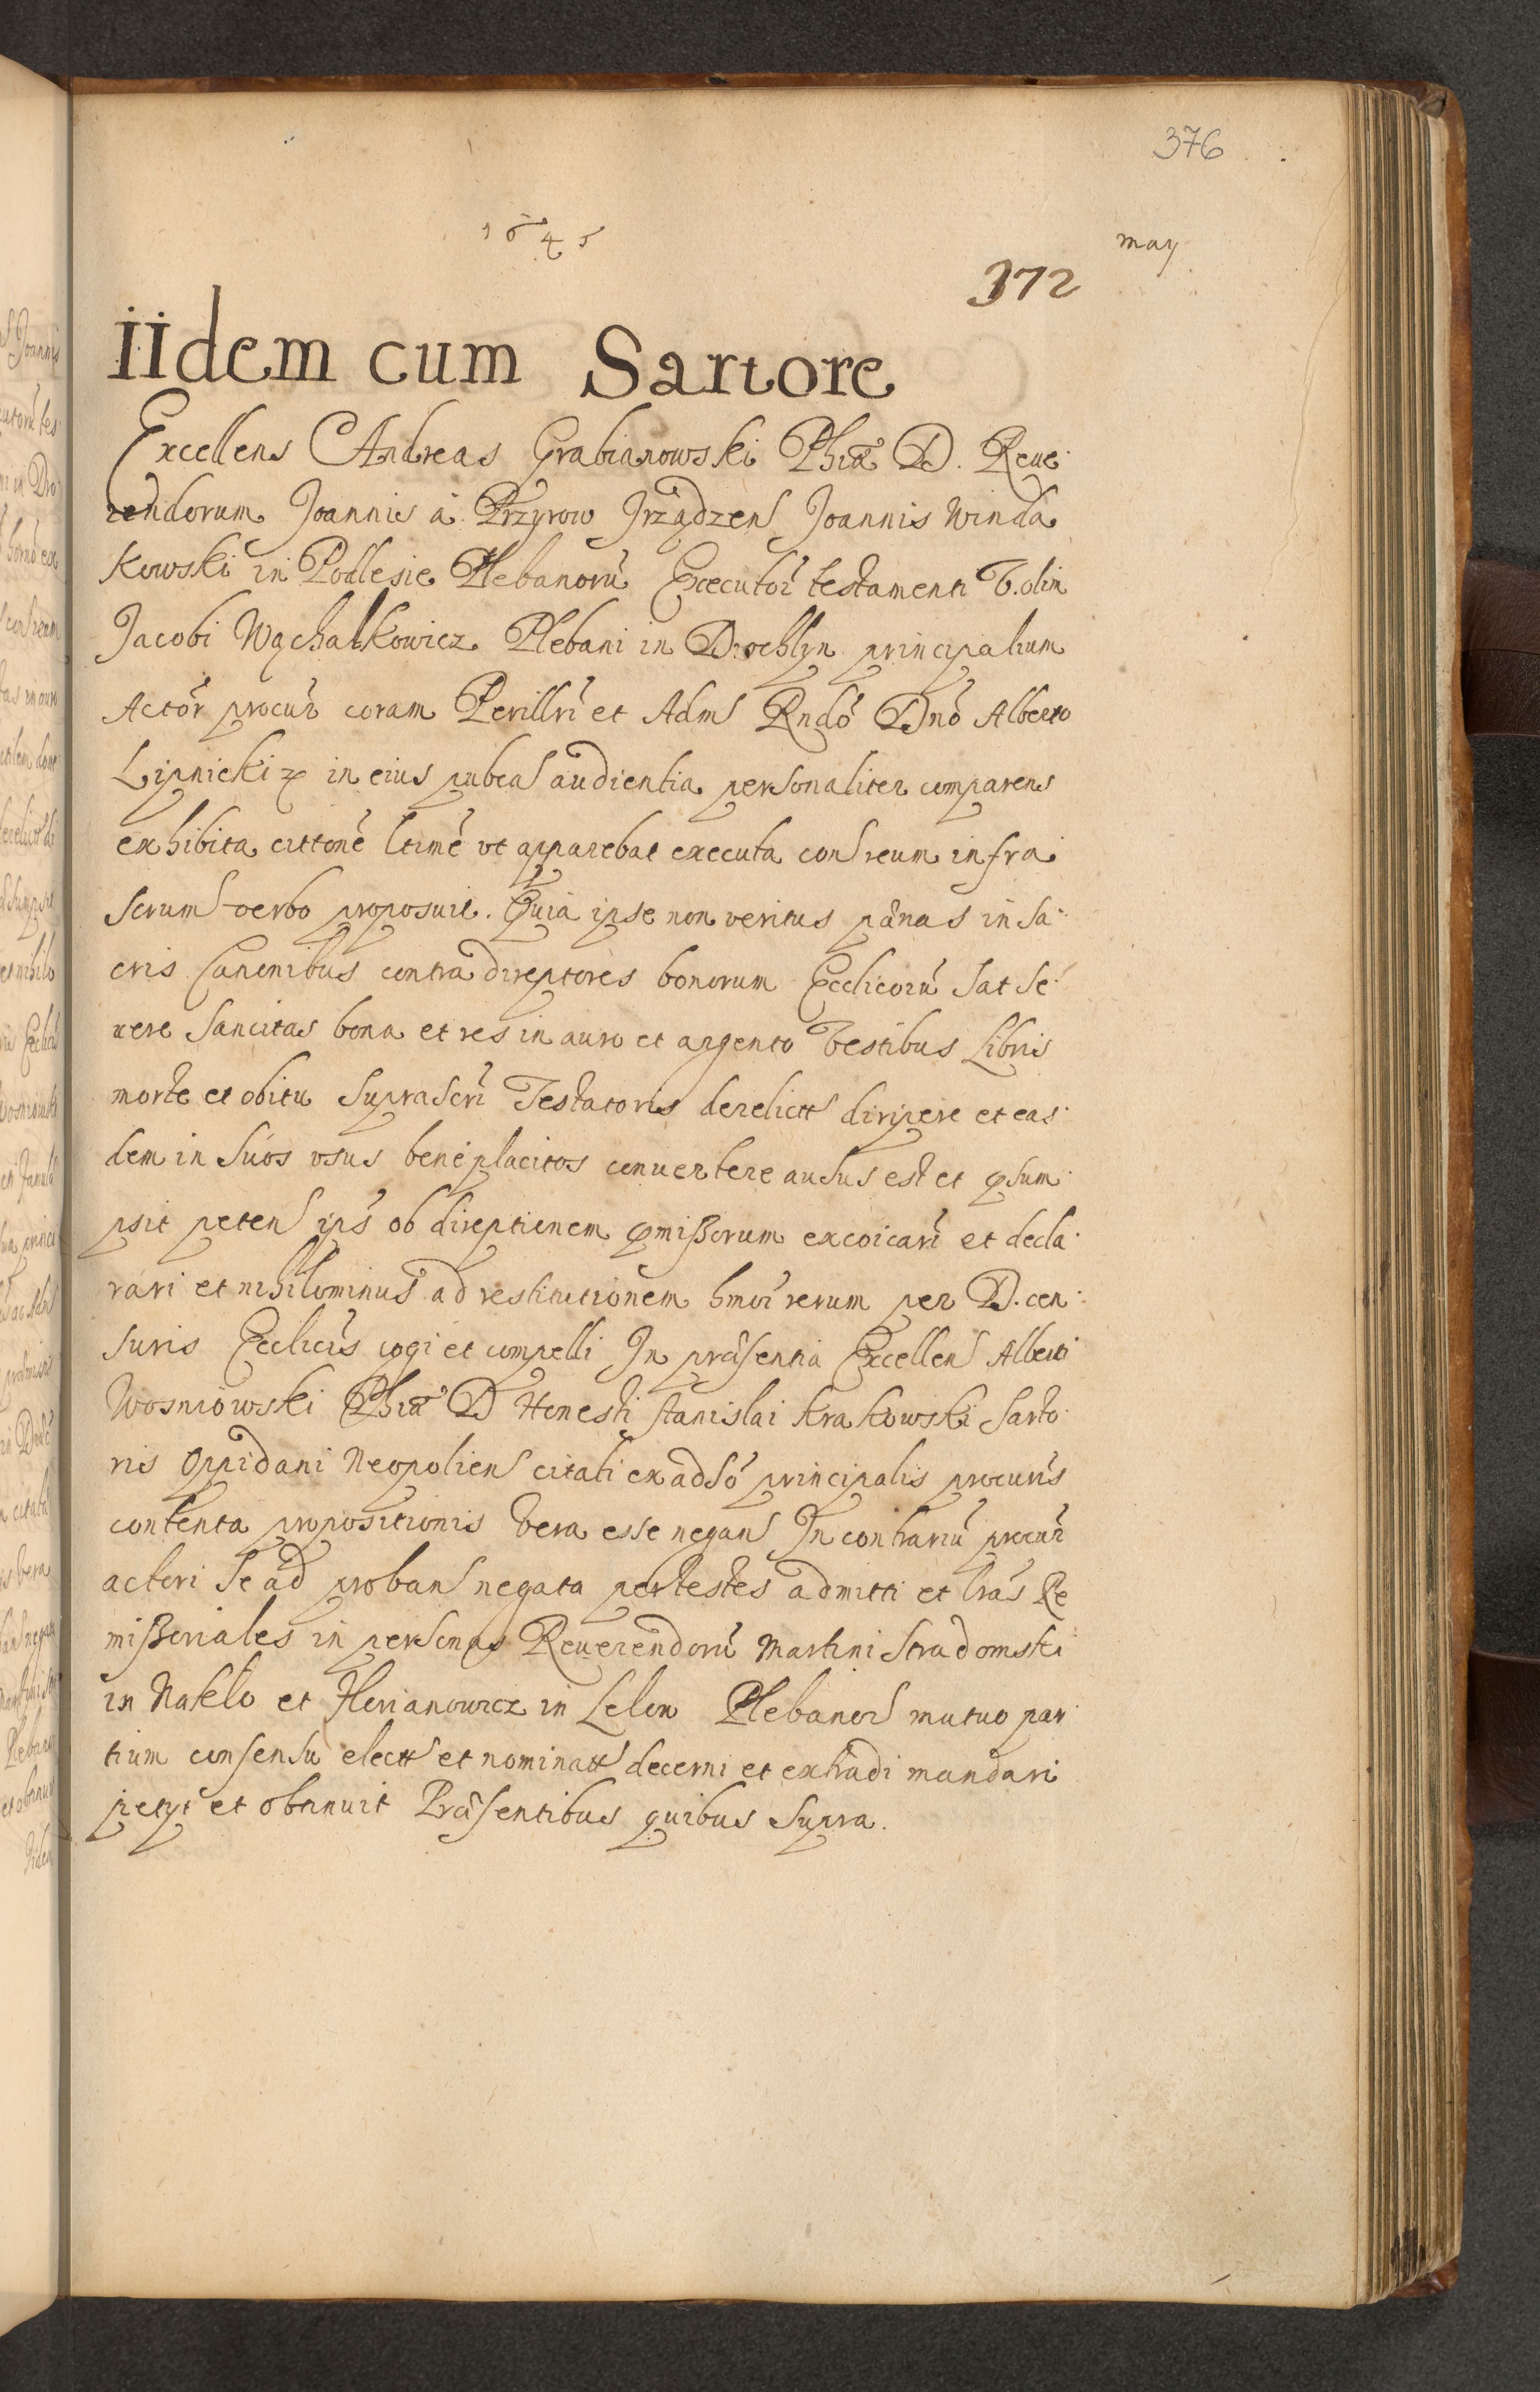 376
1645
May
372
IIdem cum Sartore
Excellens Andreas Grabianowski Phiæ D. Reve-
rendorum Joannis a Przyrow Jrządzens Joannis Winda
kowski in Podlesie Plebanorũ Executor̃ testamenti V. olim
Jacobi Wąchalkowicz Plebani in Drochlyn principalium
Actor̃ procur̃ coram Perillri et Adm Rndo Dno Alberto
Lipnicki in eius pubca audientia personaliter comparens
exhibita cittone ltime ut apparebat executa con reum infra
scrum verbo proposuit. Quia ipse non veritus pænas in sa-
cris Canonibus contra direptores bonorum Ecclicorũ sat se-
vere sancitas bona et res in auro et argento vestibus Libris
morte et obitu suprascri Testatoris derelictt diripere et eas-
dem in suos usus beneplacitos convertere ausus est et psum-
psit petens ips ob direptionem pmissorum excoicari et decla-
rari et nihilominus ad restitutionem hmoi rerum per D. cen-
suris Ecclicis cogi et compelli In præsentia Excellens Alberti
Wosniowski Phiæ D Honesti Stanislai Krakowski Sarto-
ris Oppidani Neopoliens citati ex adso principalis procuris
contenta propositionis vera esse negans In contrariũ procur̃
actori se ad probans negata per testes admitti et lras Re
missoriales in personas Reverendorũ Martini Stradomski
in Nakło et Florianowicz in Lelow Plebanos mutuo par-
tium consensu electt et nominatt decerni et extradi mandari
petyt et obtinuit Præsentibus quibus supra.